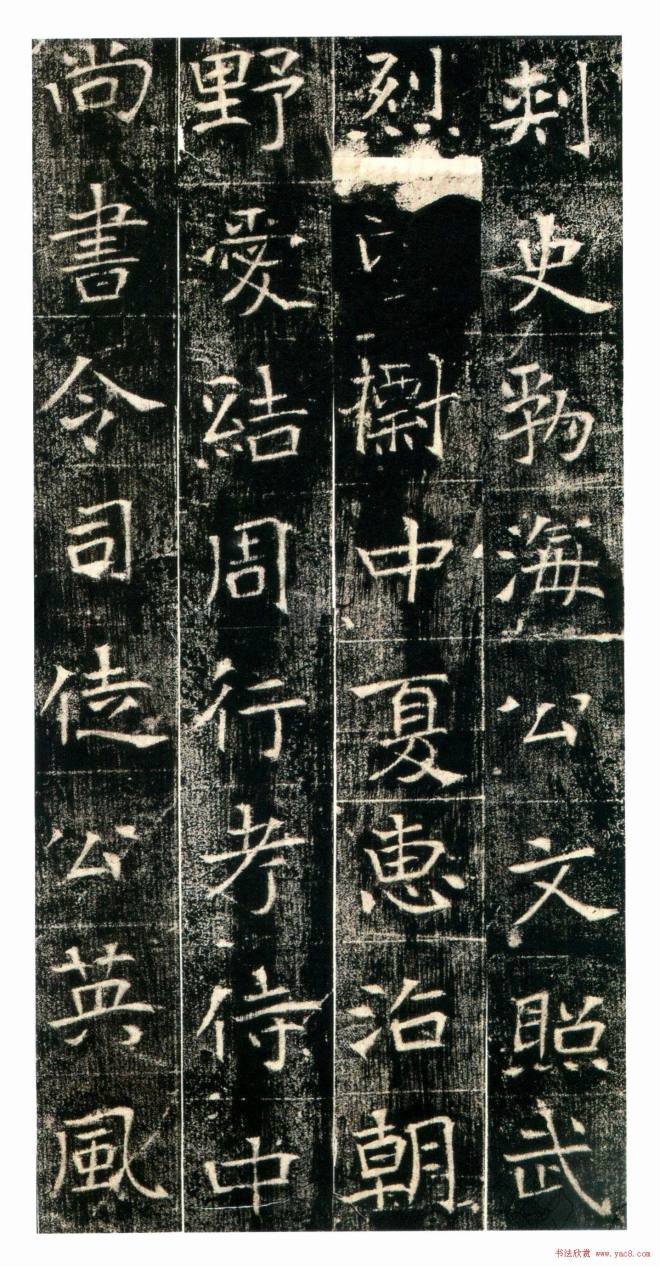 刺史勃海公文照武
烈中夏恵治朝
野愛結周行考侍中
尚書令司徒公英風
书法欣赏 www.yac8.com